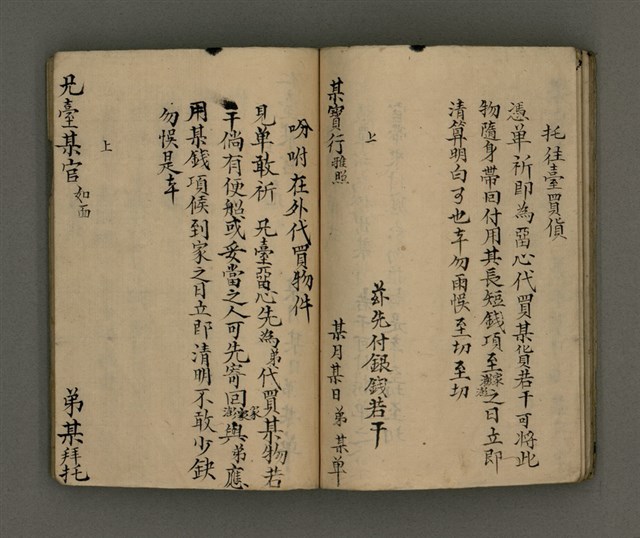 托往臺買貨
憑单祈即為畱心代買某貨若干可將此
物隨身帶回付用其長短錢項至家之日立即
清算明白可也幸勿雨悞至切至切
茲先付銀錢若干
上
某月某日弟某单
某寶行雅照
吩咐在外代買物件
見单敢祈 兄臺畱心先為弟代買某物若
干倘有便船或妥當之人可先寄回家與弟應
用某錢項候到家之日立即清明不敢少缺
勿悞是幸
上
兄臺某官如面
弟某拜托